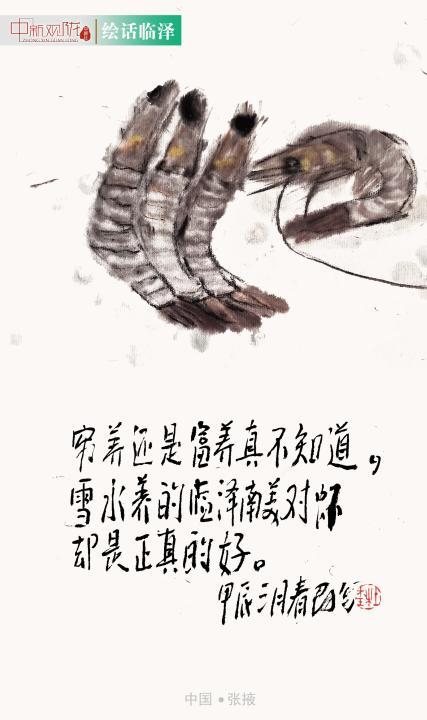 中新观陇
ZHONG XIN GUAN LONG
绘话临泽
穷养还是富养真不知道，
雪水养的临泽南美对虾
却是正真的好。
甲辰三月春
中国 ● 张掖